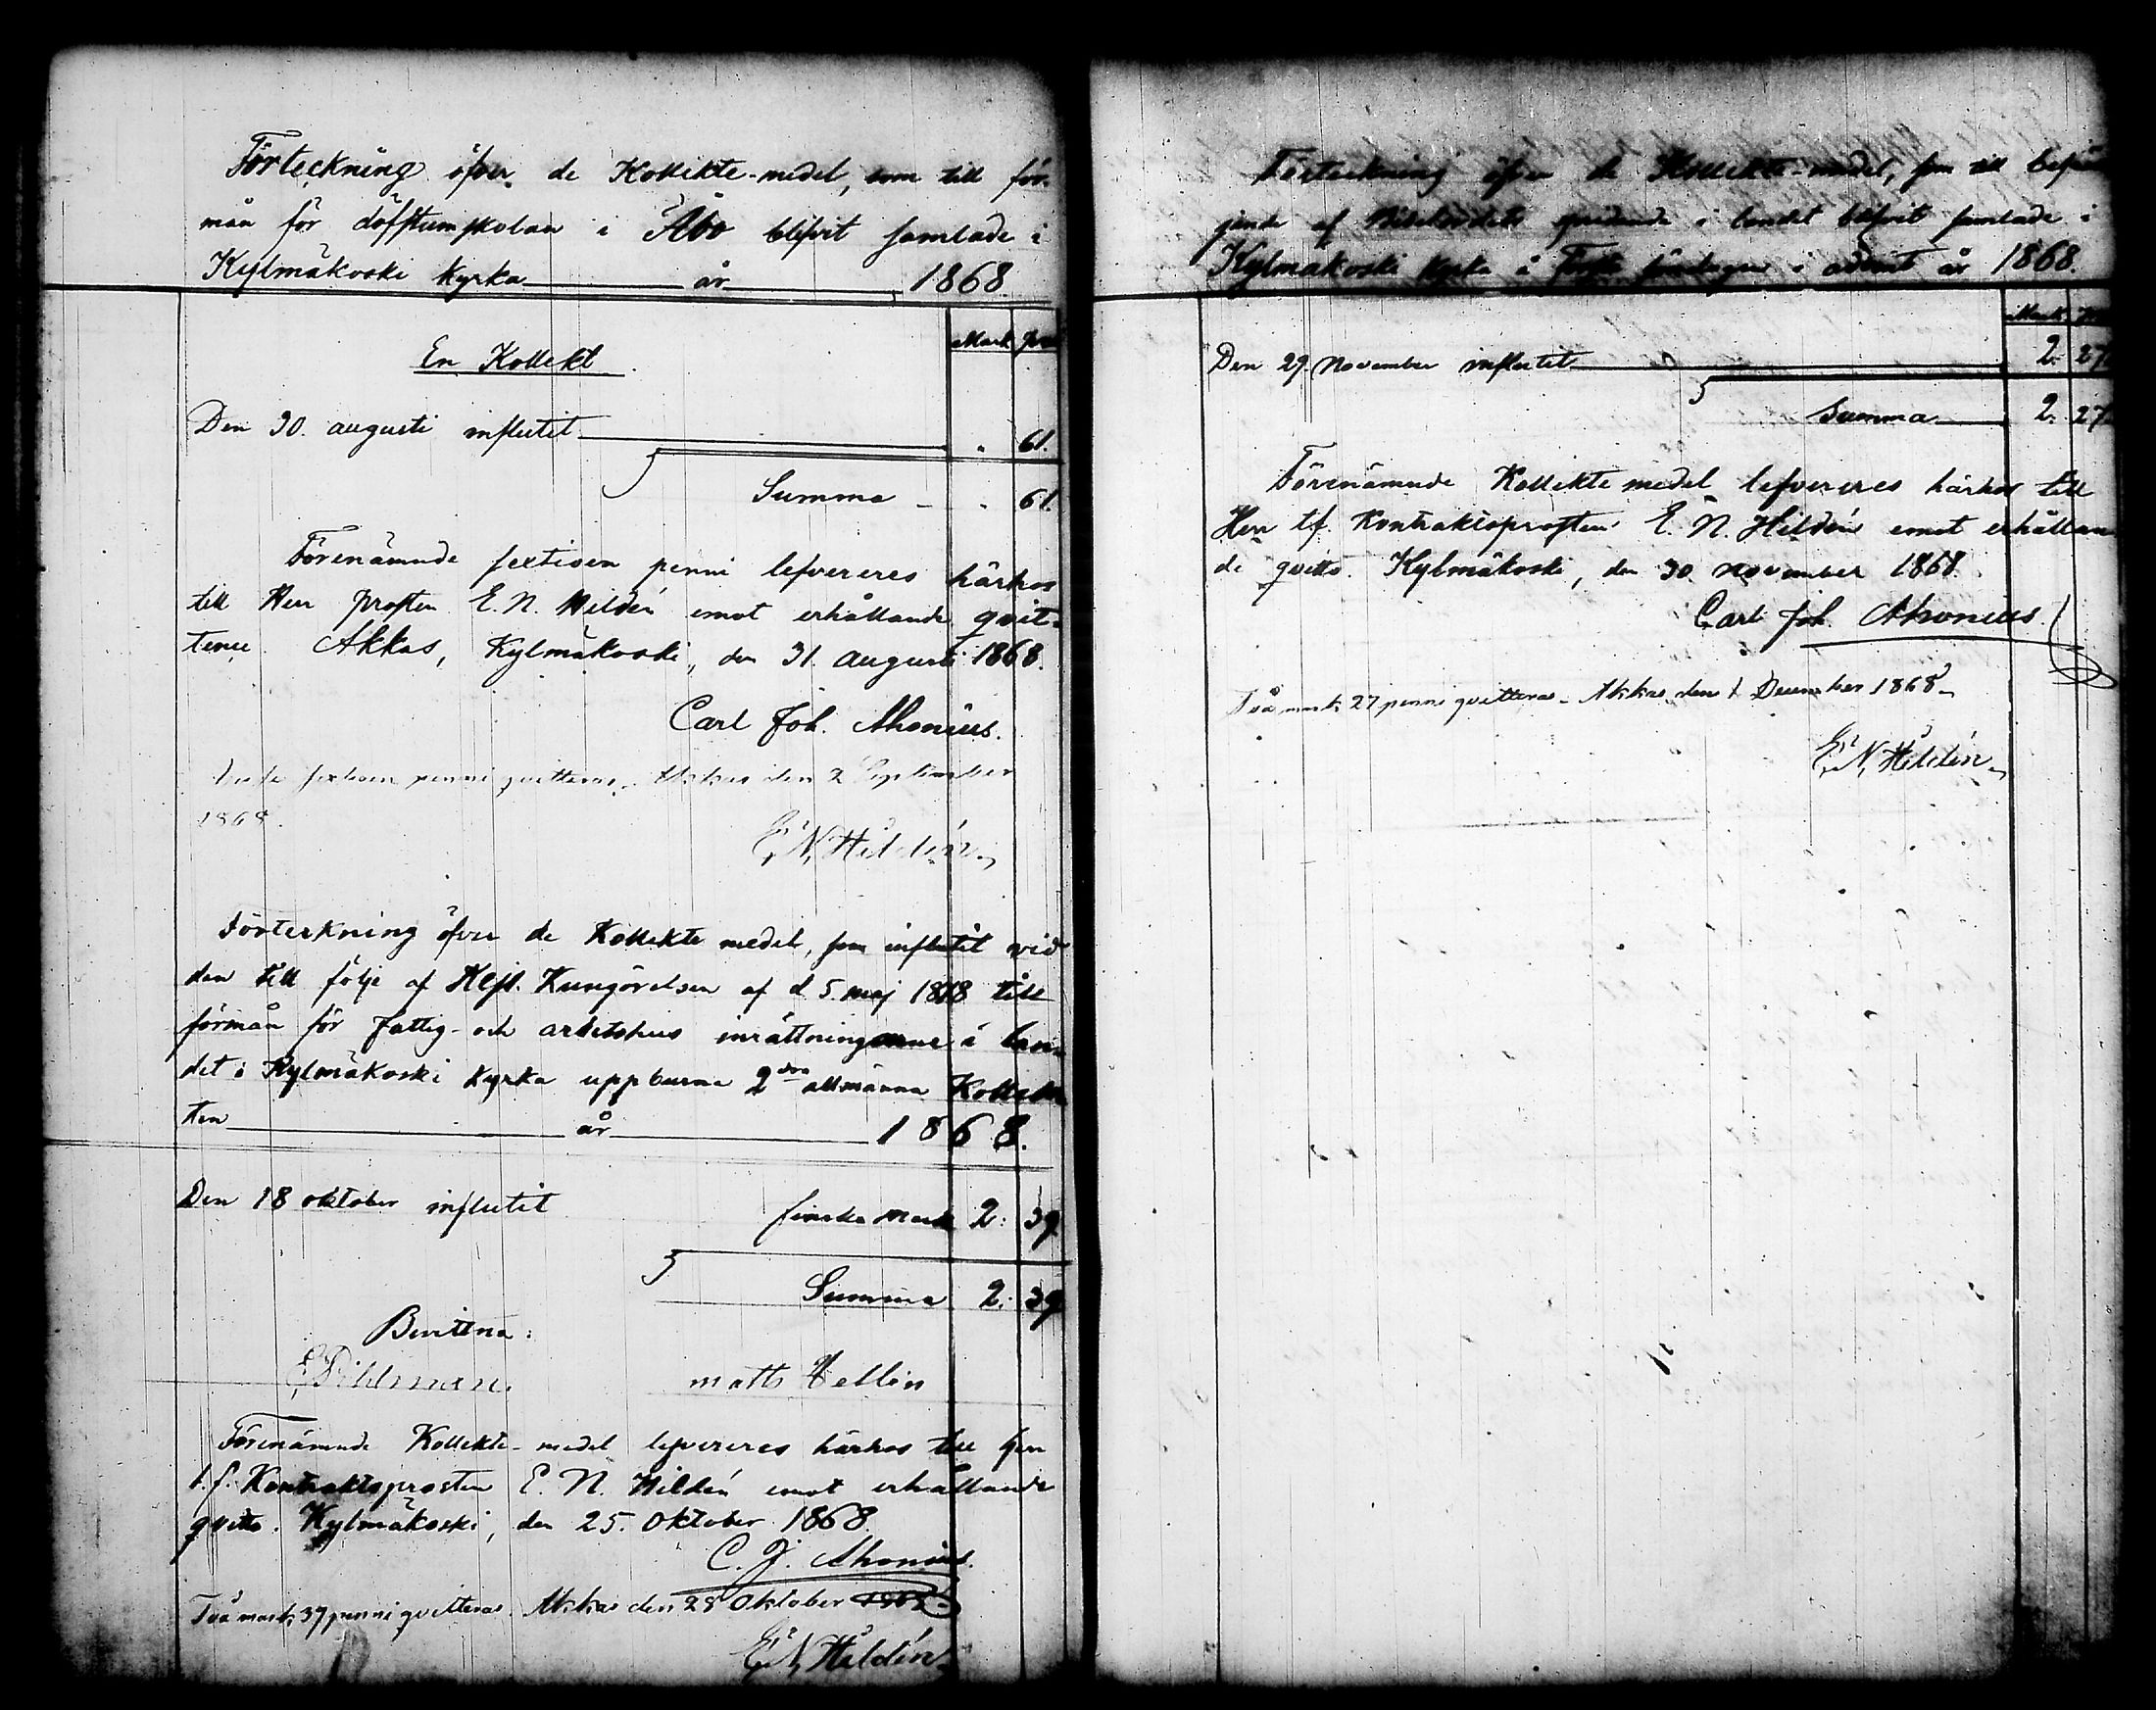 Förteckning öfver de Kollekte-medel, som till för-
mån för döfstumskolan i Åbo blifvit samlade i
Kylmäkoski kyrka år 1868
Mark
En Kollekt
Den 30. augusti influtit " 61.
Summa " 61.
Förenämnde sextioen penni lefvereres härhos
till Herr Prosten E. N. Hildén emot erhållande qvit-
tence. Akkas, Kylmäkoski, den 31. augusti 1868.
Carl Joh. Ahonius.
sextioen penni qvitteras. Akkas den 2 September
1868.
E. N. Hildén.
Förteckning öfver de Kollekte medel, som influtit vid
den till följe af Kejs. Kungörelsen af d 5. maj 18 8 till
förmån för fattig- och arbetshus inrättningarne i lan-
det i Kylmäkoski kyrka uppburna 2dra allmänna Kollek-
ten år 1868.
Den 18 oktober influtit finska mark 2: 37
Summa 2: 37
Bevittna:
E Pihlman. Matts Hellén
Förenämnde Kollekte-medel lefvereres härhos till Herr
t.f. Kontraktsprosten E. N. Hildén emot erhållande
qvitto. Kylmäkoski, den 25. Oktober 1868.
C. J. Ahonius.
Två mark 37 penni qvitteras. Akkas den 28 Oktober 1868.
E. N. Hildén.
Förteckning öfver de Kollekte-medel, som till befräm-
jande af Bibelordets spridande i landet blifvit samlade i
Kylmäkoski kyrka å Första söndagen i advent år 1868.
Mark
Den 29. November influtit 2. 27
Summa 2. 27
Förenämnde Kollekte medel lefvereres härhos till
Herr t.f. Kontraktsprosten E. N. Hildén emot erhållan-
de qvitto. Kylmäkoski, den 30. November 1868.
Carl Joh. Ahonius.
Två mark 27 penni qvitteras. Akkas den 1 December 1868.
E. N. Hildén.